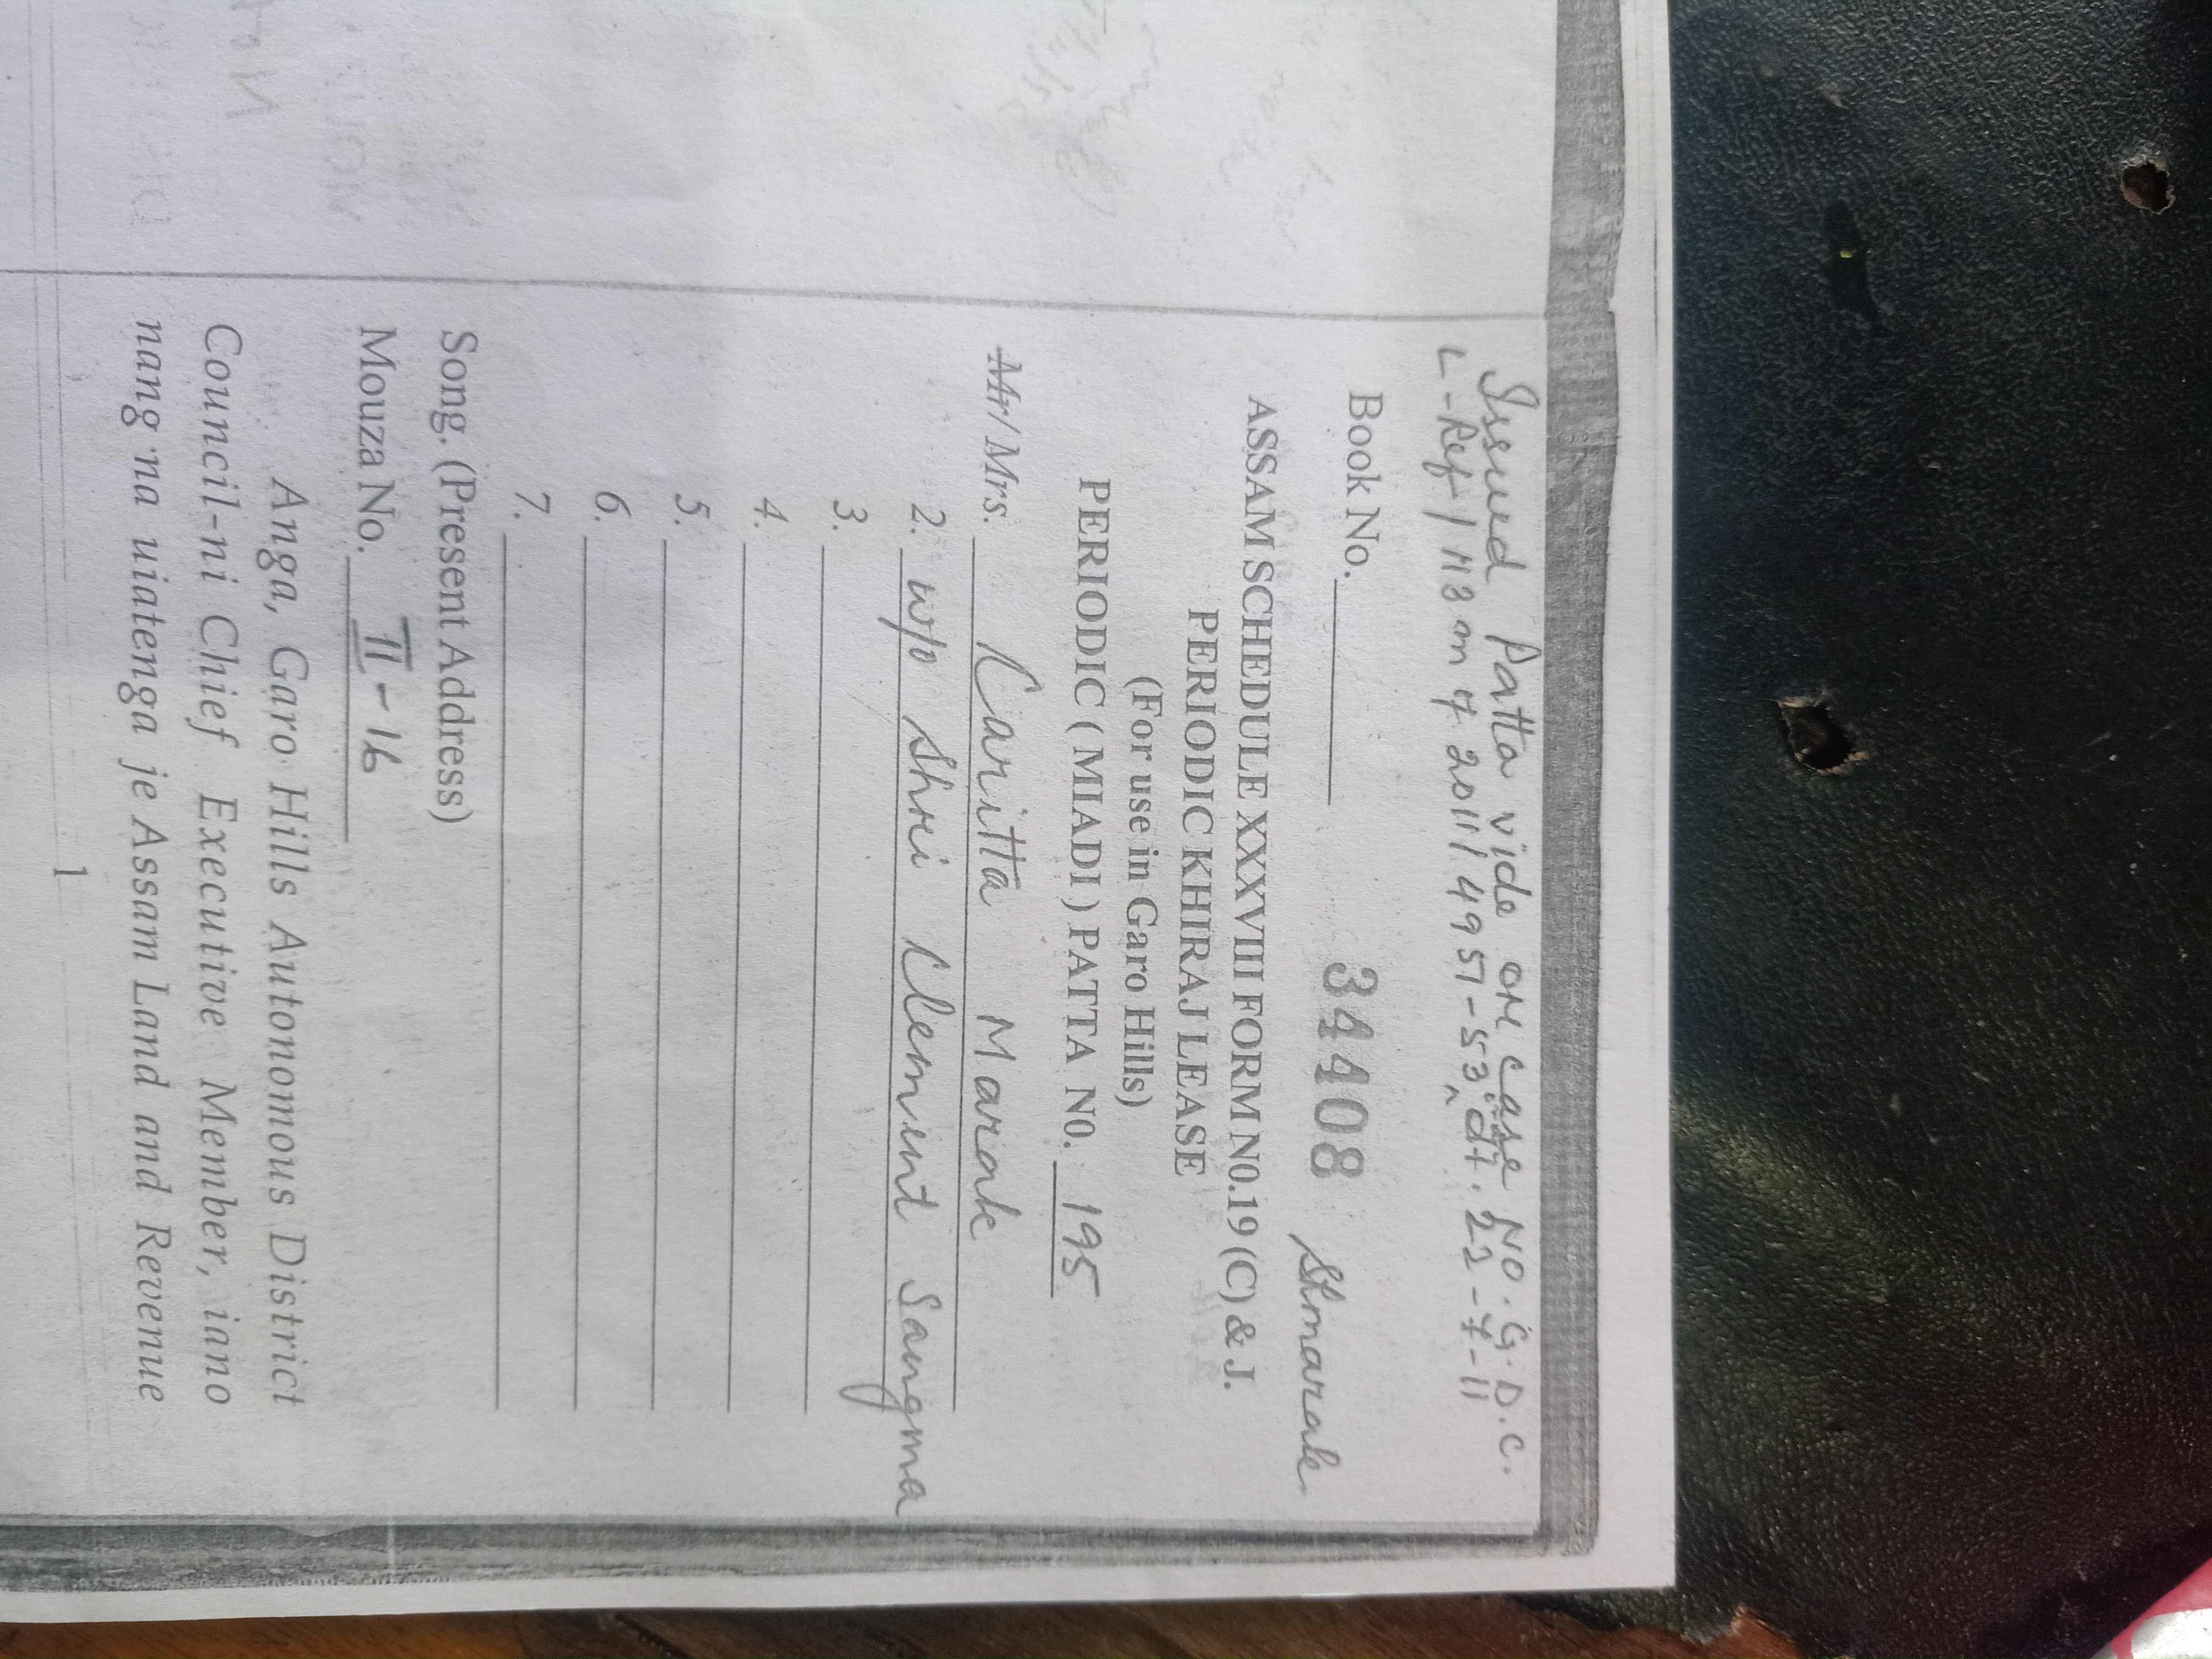 Issued Patta vide ORC case No. G.D.C.
L-Ref/113 on 7 2011/4951-53, dt. 22-7-11
Book No. 34408
Stmarak
ASSAM SCHEDULE XXXVIII FORM N0.19 (C) & J.
PERIODIC KHIRAJ LEASE
(For use in Garo Hills)
PERIODIC ( MIADI ) PATTA N0. 195
Mr/Mrs. Caritta Marak
2. w/o Shri Clement Sangma
3.
4.
5.
6.
7.
Song. (Present Address)
Mouza No. II-16
Anga, Garo Hills Autonomous District
Council-ni Chief Executive Member, iano
nang'na uiatenga je Assam Land and Revenue
1